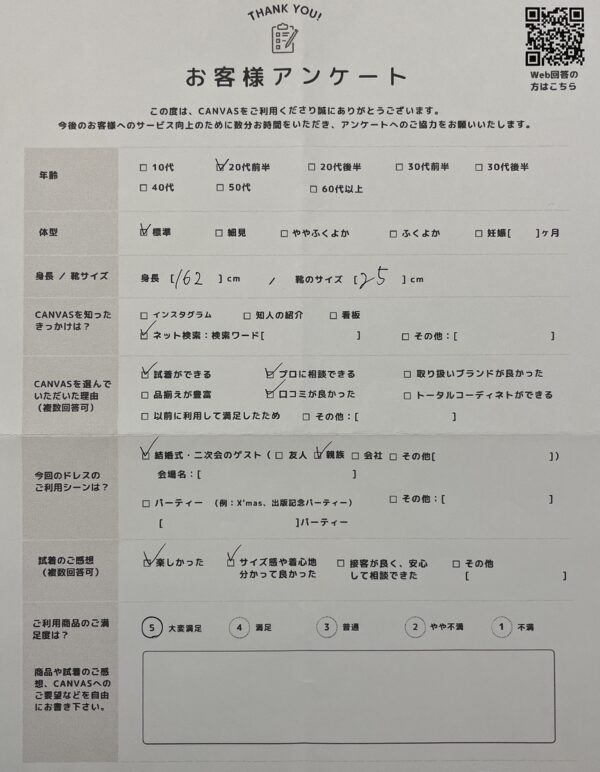 THANK YOU!
お客様アンケート
Web回答の
方はこちら
この度は、CANVASをご利用くださり誠にありがとうございます。
今後のお客様へのサービス向上のために数分お時間をいただき、アンケートへのご協力をお願いいたします。
年齢
□ 10代 ☑ 20代前半 □ 20代後半 □ 30代前半 □ 30代後半
□ 40代 □ 50代 □ 60代以上
体型
☑ 標準 □ 細見 □ ややふくよか □ ふくよか □ 妊娠[ ]ヶ月
身長 / 靴サイズ
身長 [162] cm / 靴のサイズ [25] cm
CANVASを知った
きっかけは？
□ インスタグラム □ 知人の紹介 □ 看板
☑ ネット検索：検索ワード[ ] □ その他：[ ]
CANVASを選んで
いただいた理由
（複数回答可）
☑ 試着ができる ☑ プロに相談できる □ 取り扱いブランドが良かった
□ 品揃えが豊富 ☑ 口コミが良かった □ トータルコーディネートができる
□ 以前に利用して満足したため □ その他：[ ]
今回のドレスの
ご利用シーンは？
☑ 結婚式・二次会のゲスト（ □ 友人 ☑ 親族 □ 会社 □ その他[ ]）
会場名：[ ]
□ パーティー （例：X'mas、出版記念パーティー） □ その他：[ ]
[ ]パーティー
試着のご感想
（複数回答可）
☑ 楽しかった ☑ サイズ感や着心地 □ 接客が良く、安心 □ その他
分かって良かった して相談できた [ ]
ご利用商品のご満
足度は？
5 大変満足 4 満足 3 普通 2 やや不満 1 不満
商品や試着のご感
想、CANVASへの
ご要望などを自由
にお書き下さい。